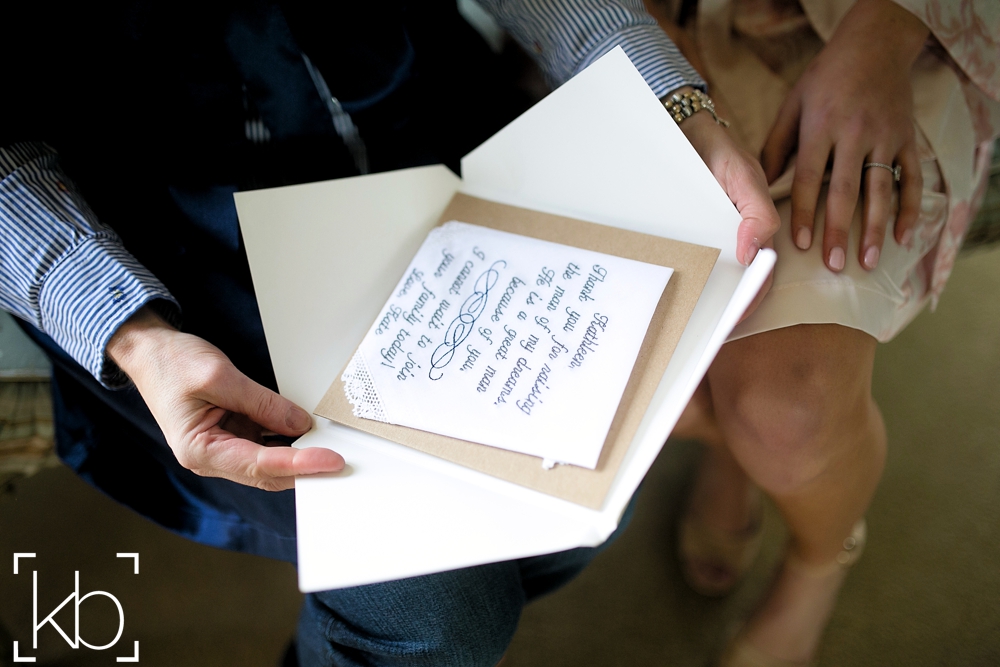 Kathleen,
Thank you for raising
the man of my dreams.
He is a great man
because of you.
I cannot wait to join
your family today!
Love, Kate
kb